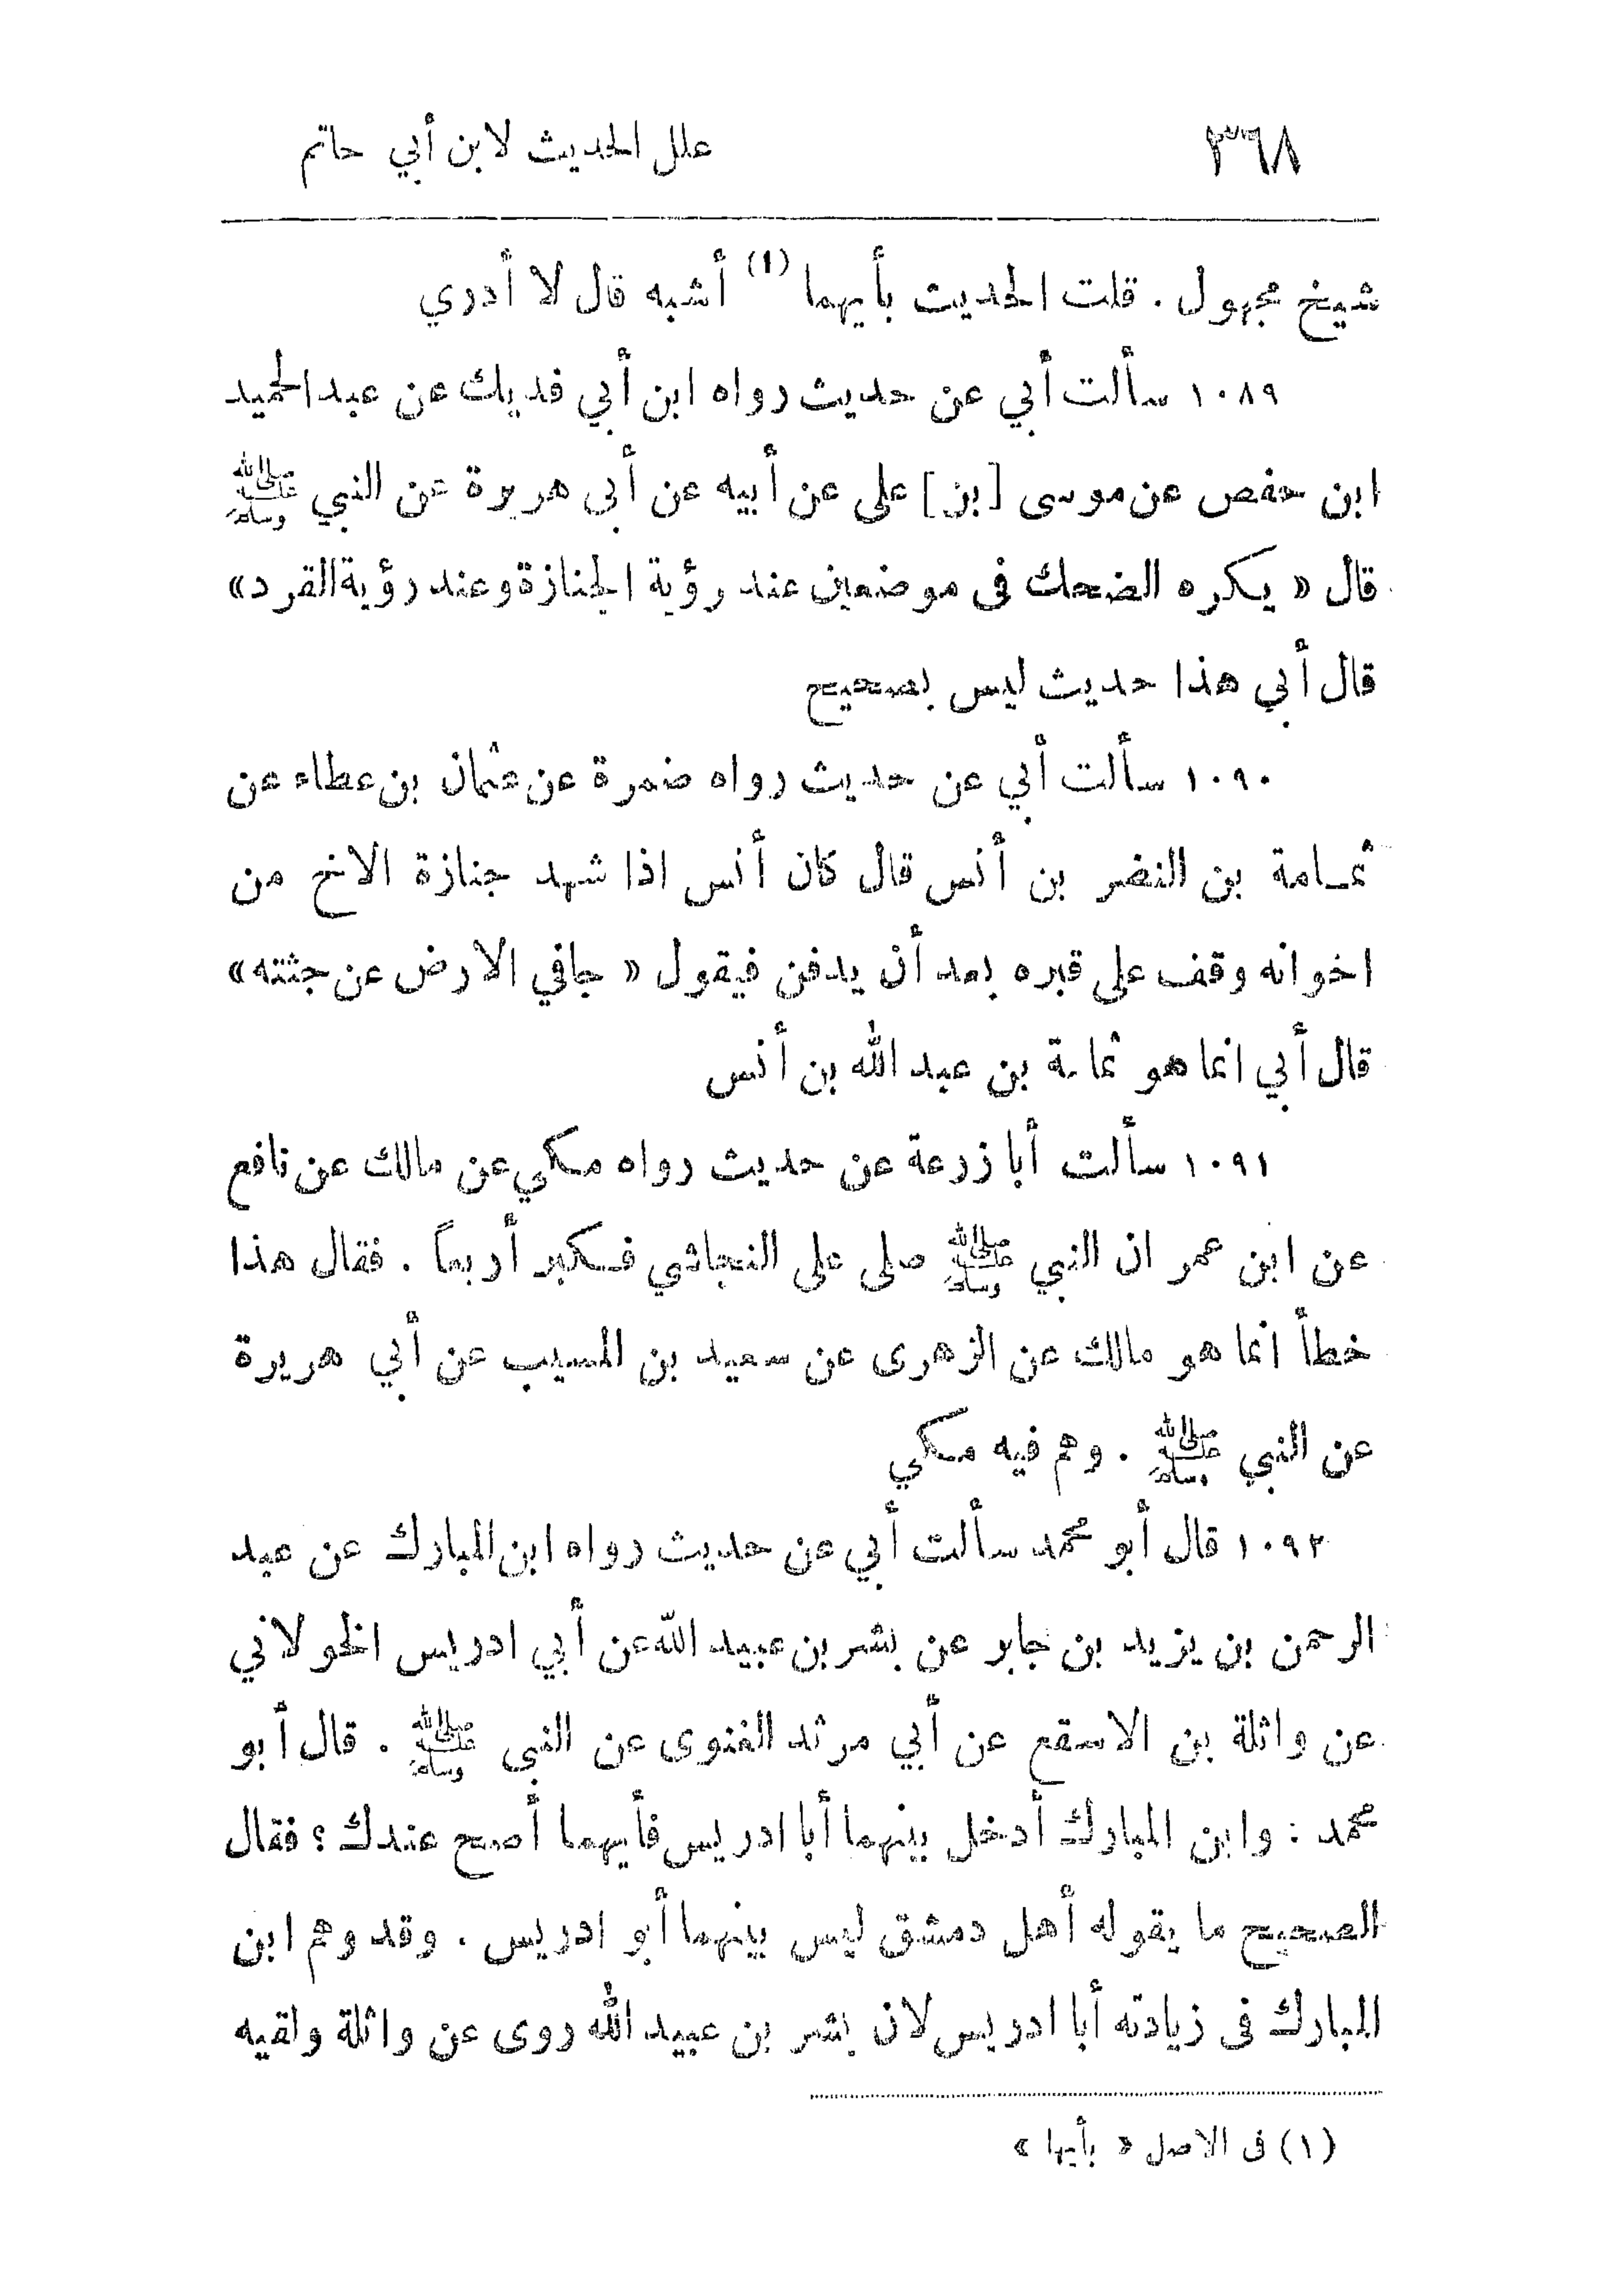 ٣٦٨ علل الحديث لابن أبي حاتم
شيخ مجهول . قلت الحديث بأيهما (١) أشبه قال لا أدري
١٠٨٩ سألت أبي عن حديث رواه ابن أبي فديك عن عبد الحميد
ابن حفص عن موسى [بن] على عن أبيه عن أبى هريرة عن النبي ﷺ
قال « يكره الضحك فى موضعين عند رؤية الجنازة وعند رؤية القرد»
قال أبي هذا حديث ليس بصحيح
١٠٩٠ سألت أبي عن حديث رواه ضمرة عن عثمان بن عطاء عن
ثمامة بن النضر بن أنس قال كان أنس اذا شهد جنازة الاخ من
اخوانه وقف على قبره بعد أن يدفن فيقول « جافي الارض عن جثته»
قال أبي انما هو ثمامة بن عبد الله بن أنس
١٠٩١ سألت أبا زرعة عن حديث رواه مكي عن مالك عن نافع
عن ابن عمر ان النبي ﷺ صلى على النجاشي فكبر أربعاً . فقال هذا
خطأ انما هو مالك عن الزهرى عن سعيد بن المسيب عن أبي هريرة
عن النبي ﷺ . وهم فيه مكي
١٠٩٢ قال أبو محمد سألت أبي عن حديث رواه ابن المبارك عن عبد
الرحمن بن يزيد بن جابر عن بشر بن عبيد الله عن أبي ادريس الخولاني
عن واثلة بن الاسقع عن أبي مرثد الغنوى عن النبي ﷺ . قال أبو
محمد : وابن المبارك أدخل بينهما أبا ادريس فأيهما أصح عندك ؟ فقال
الصحيح ما يقوله أهل دمشق ليس بينهما أبو ادريس . وقد وهم ابن
المبارك فى زيادته أبا ادريس لان بشر بن عبيد الله روى عن واثلة ولقيه
(١) فى الاصل « بأيها »